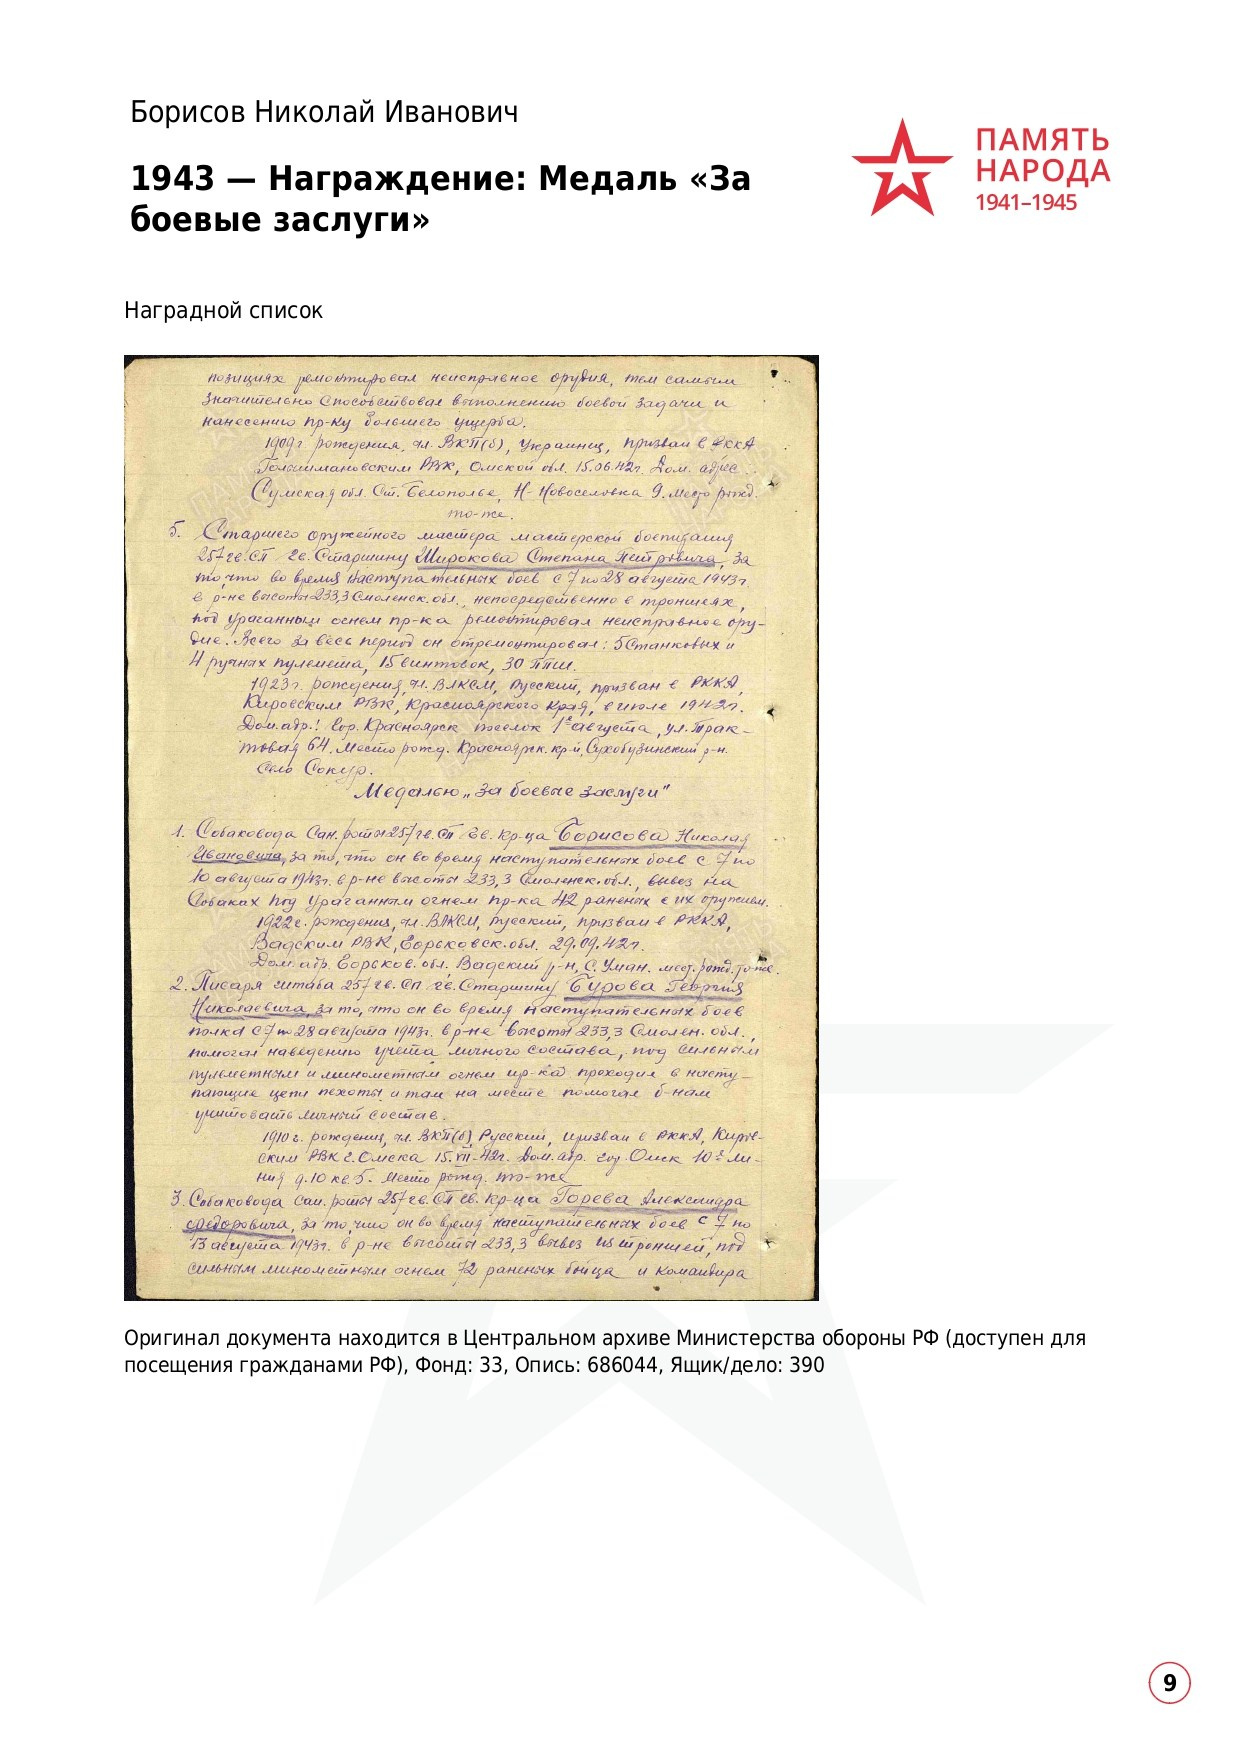 Борисов Николай Иванович
1943 — Награждение: Медаль «За
боевые заслуги»
ПАМЯТЬ
НАРОДА
1941–1945
Наградной список
позициях ремонтировал неисправное орудия, тем самым
значительно способствовал выполнению боевой задачи и
нанесению пр-ку большего ущерба.
1909г. рождения, чл. ВКП(б), Украинец, призван в РККА
Голышмановским РВК, Омской обл. 15.06.42г. Дом. адрес
Сумская обл. Ст. Белополье, Н-Новоселовка 9. место рожд.
то-же.
5. Старшего оружейного мастера мастерской боепитания
257 гв. СП гв. Старшину Широкова Степана Петровича, за
то, что во время наступательных боев с 7 по 28 августа 1943г.
в р-не высоты 233,3 Смоленск. обл., непосредственно в траншеях,
под ураганным огнем пр-ка ремонтировал неисправное ору-
дие. Всего за весь период он отремонтировал: 5 Станковых и
4 ручных пулемета, 15 винтовок, 30 ППШ.
1923г. рождения, чл. ВЛКСМ, Русский, призван в РККА,
Кировским РВК, Красноярского Края, в июле 1942г.
Дом. адр.: гор. Красноярск поселок 1е августа, ул. Трак-
товая 64. Место рожд. Красноярск. кр-й, Сухобузинский р-н.
село Сокур.
Медалью „За боевые заслуги"
1. Собаковода Сан. роты 257 гв. СП гв. кр-ца Борисова Николая
Ивановича, за то, что он во время наступательных боев с 7 по
10 августа 1943г. в р-не высоты 233,3 Смоленск. обл., вывез на
Собаках под ураганным огнем пр-ка 42 раненых с их оружием.
1922г. рождения, чл. ВЛКСМ, Русский, призван в РККА,
Вадским РВК, Горьковск. обл. 29.09.42г.
Дом. адр. Горьков. обл. Вадский р-н, С. Умай. мест. рожд. то-же.
2. Писаря штаба 257 гв. СП гв. Старшину Бурова Георгия
Николаевича, за то, что он во время наступательных боев
полка с 7 по 28 августа 1943г. в р-не высоты 233,3 Смолен. обл.,
помогал наведению учета личного состава, под сильным
пулеметным и минометным огнем пр-ка проходил в насту-
пающие цепи пехоты и там на месте помогал б-нам
учитовать личный состав.
1910г. рождения, чл. ВКП(б), Русский, призван в РККА, Киров-
ским РВК г. Омска 15.VII-42г. Дом. адр. гор. Омск 10я Ли-
ния д. 10 кв 5. Место рожд. то-же
3. Собаковода сан. роты 257 гв. СП гв. кр-ца Горева Александра
Федоровича, за то, что он во время наступательных боев с 7 по
13 августа 1943г. в р-не высоты 233,3 вывез из траншей, под
сильным минометным огнем 72 раненых бойца и командира
Оригинал документа находится в Центральном архиве Министерства обороны РФ (доступен для
посещения гражданами РФ), Фонд: 33, Опись: 686044, Ящик/дело: 390
9